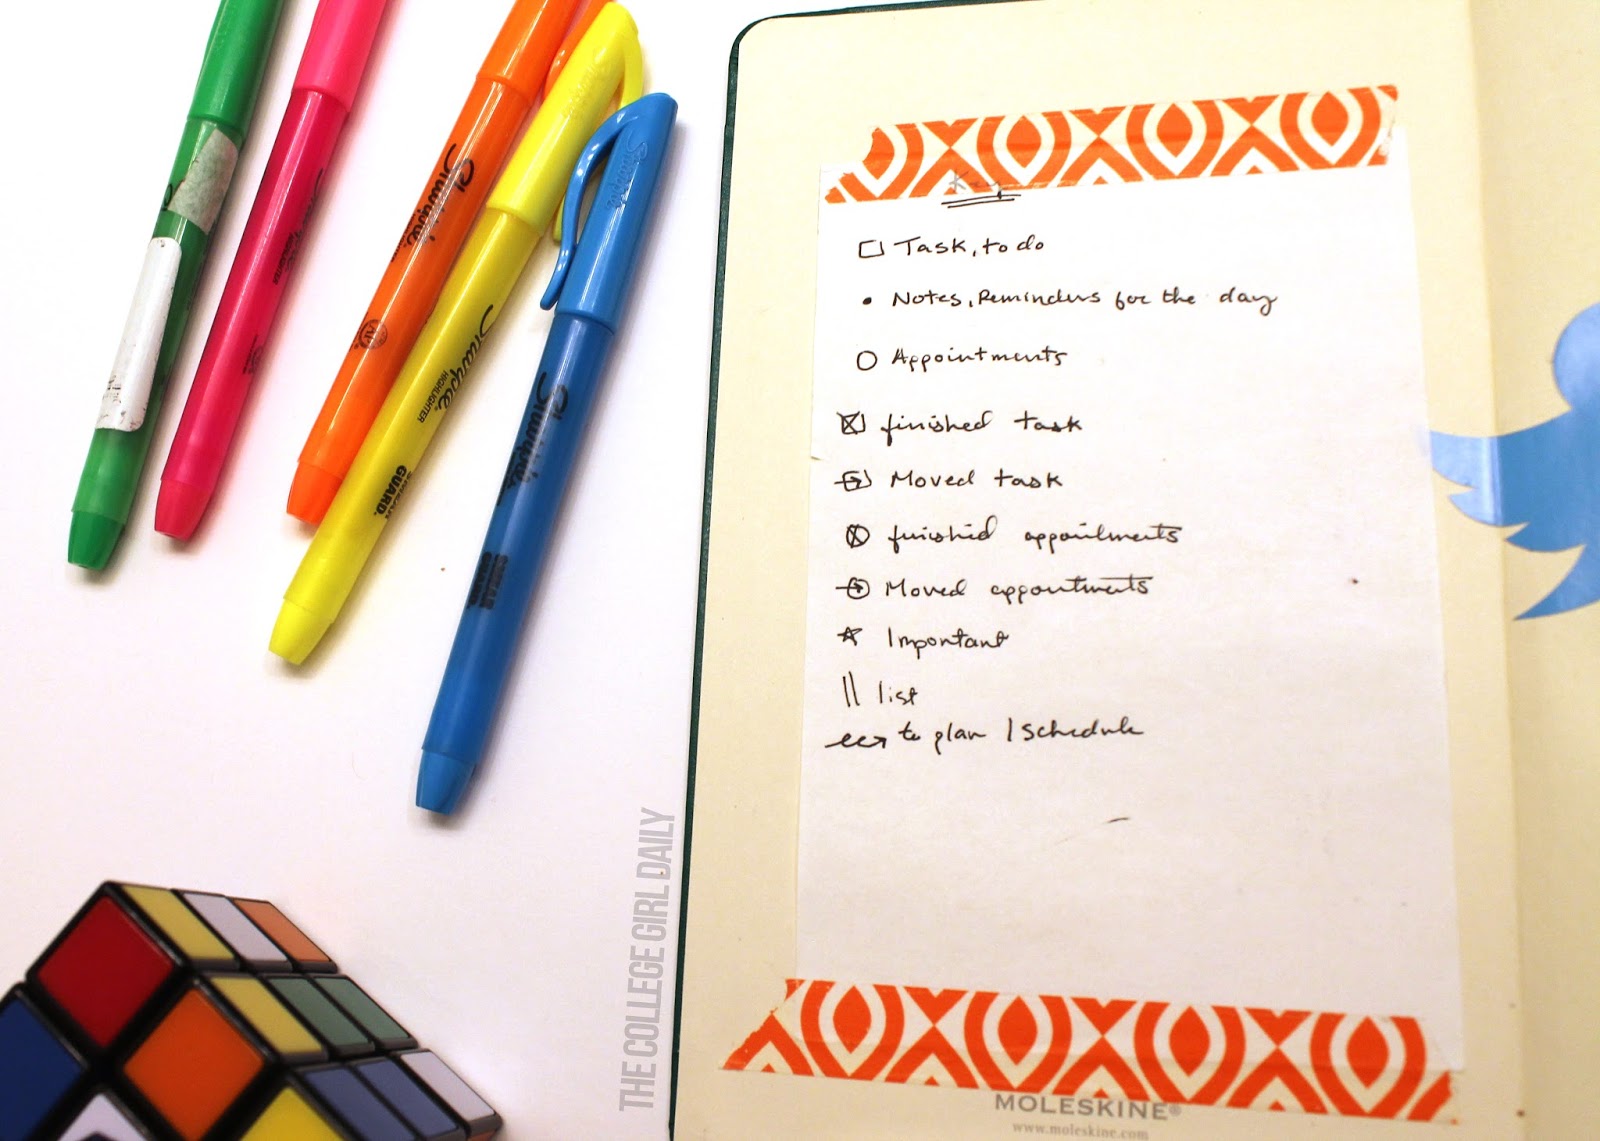 Key
Task, to do
Notes, Reminders for the day
Appointments
finished task
Moved task
finished appointments
Moved appointments
Important
list
to plan / schedule
MOLESKINE®
www.moleskine.com
THE COLLEGE GIRL DAILY
Sharpie
Sharpie
Sharpie
HIGHLIGHTER
SMEAR
GUARD.
Sharpie
Sharpie
SMEAR
GUARD.